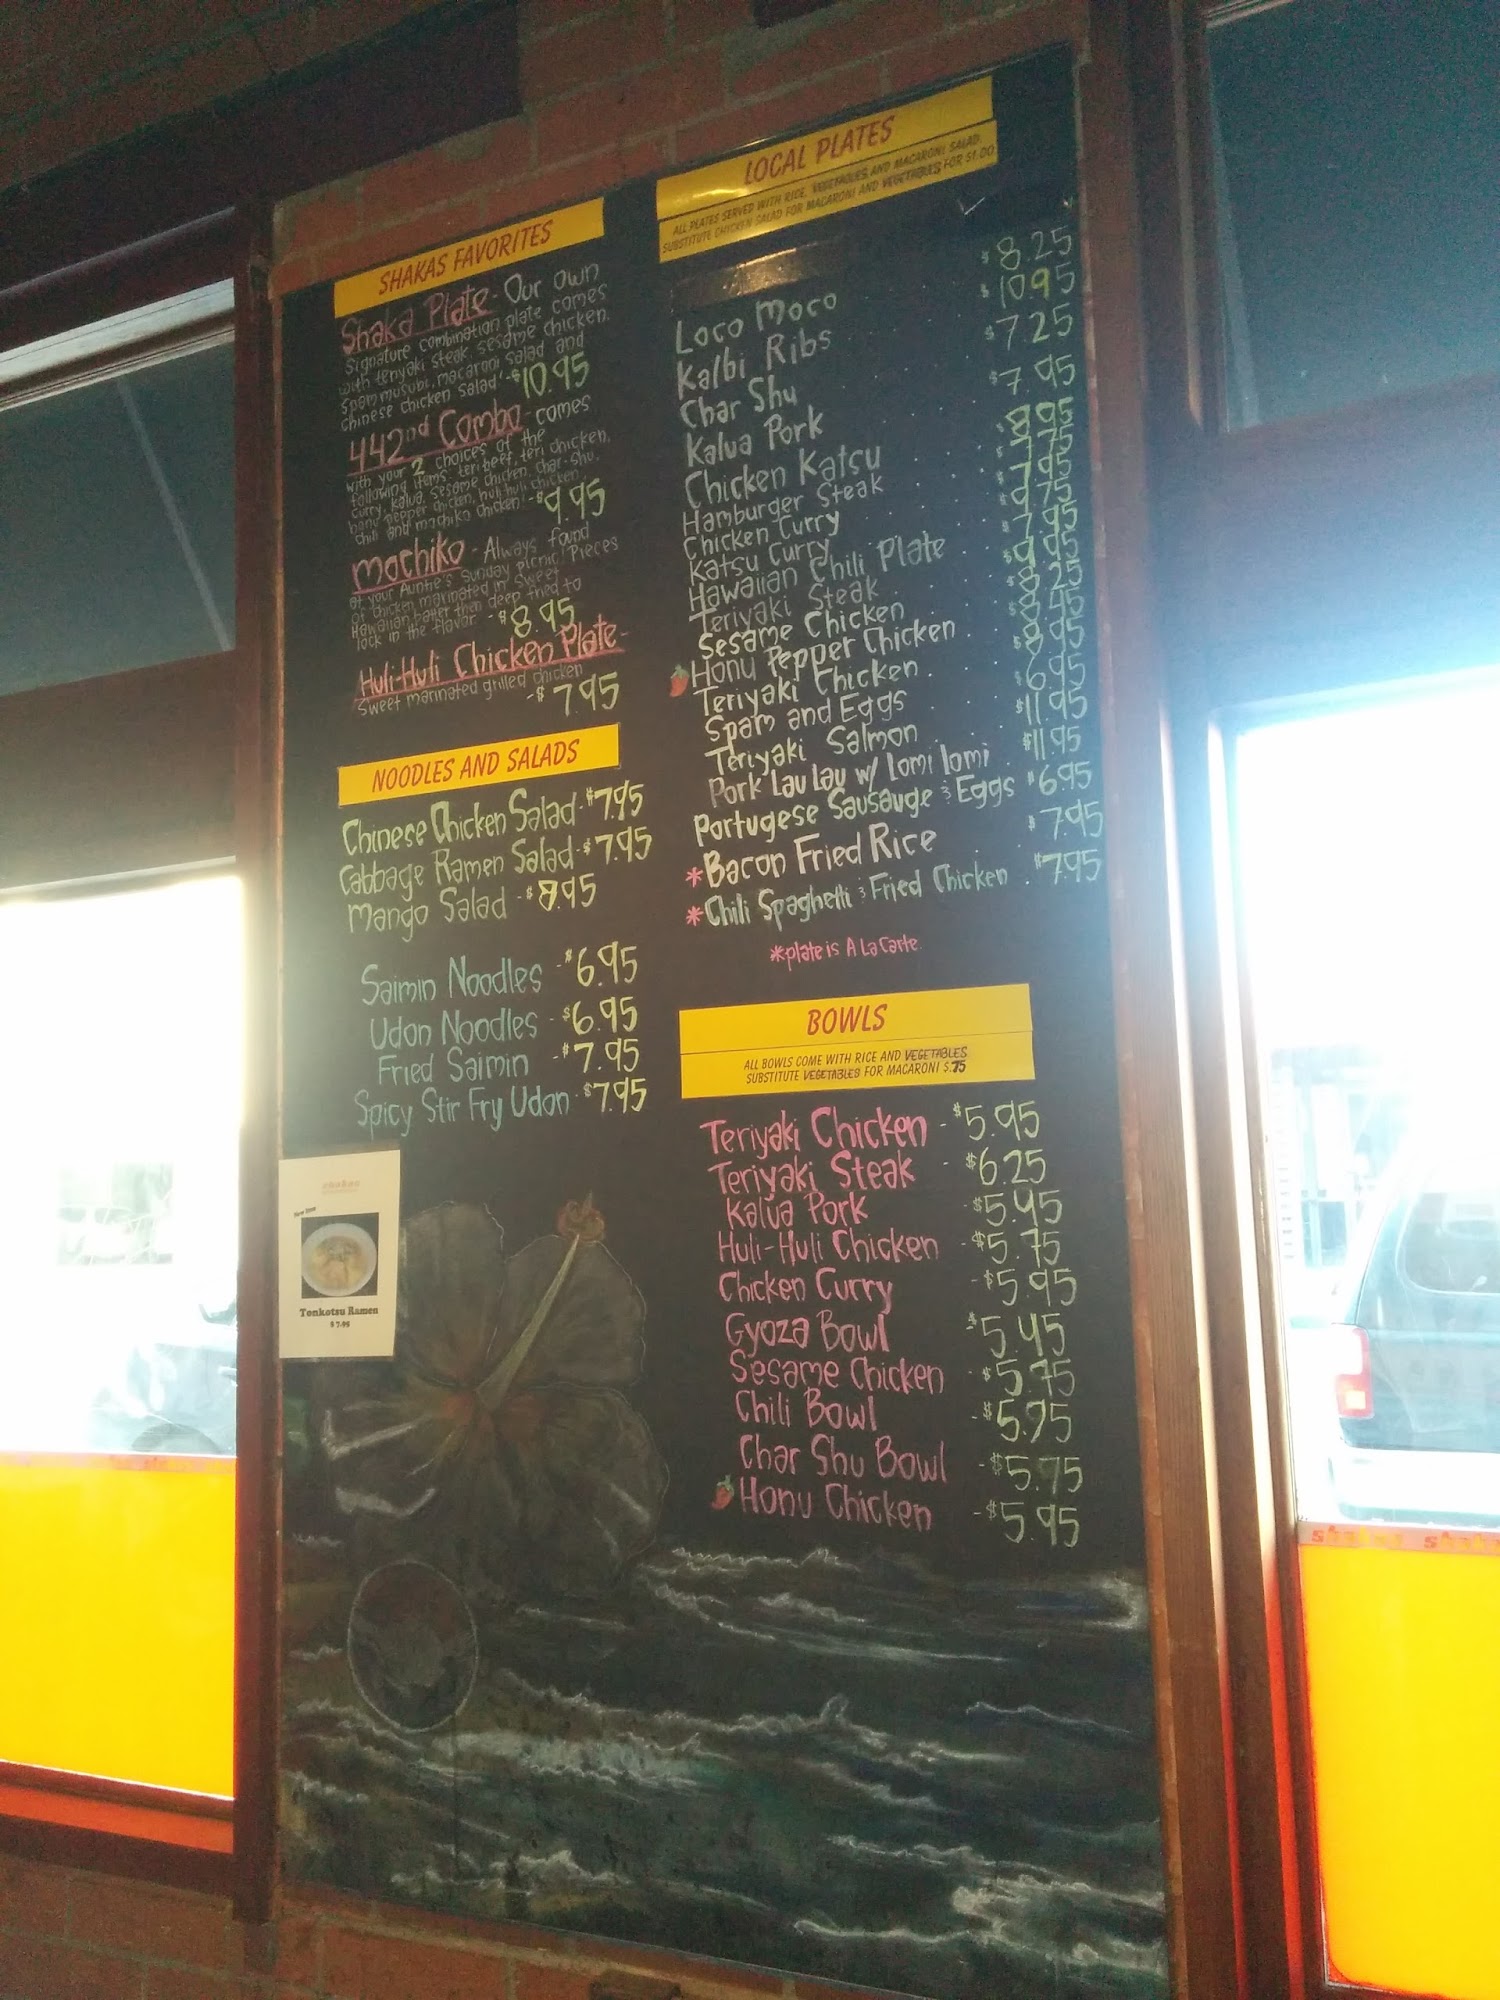 SHAKAS FAVORITES
Shaka Plate - Our own
signature combination plate comes
with teriyaki steak, sesame chicken,
spam musubi, macaroni salad and
chinese chicken salad - $10.95
442nd Combo - comes
with your 2 choices of the
following items: teri beef, teri chicken,
curry, kalua, sesame chicken, char-shu,
honu pepper chicken, huli huli chicken
chili and mochiko chicken! - $9.95
mochiko - Always found
at your Auntie's Sunday picnic! Pieces
of chicken marinated in sweet
Hawaiian batter then deep fried to
lock in the flavor - $8.95
Huli-Huli Chicken Plate -
Sweet marinated grilled chicken
- $7.95
NOODLES AND SALADS
Chinese Chicken Salad - $7.95
Cabbage Ramen Salad - $7.95
Mango Salad - $8.95
Saimin Noodles - $6.95
Udon Noodles - $6.95
Fried Saimin - $7.95
Spicy Stir Fry Udon - $7.95
Tonkotsu Ramen
$ 7.95
LOCAL PLATES
ALL PLATES SERVED WITH RICE, VEGETABLES AND MACARONI SALAD.
SUBSTITUTE CHICKEN SALAD FOR MACARONI AND VEGETABLES FOR $1.00
Loco Moco $8.25
Kalbi Ribs $10.95
Char Shu $7.25
Kalua Pork $7.95
Chicken Katsu
Hamburger Steak
Chicken Curry
Katsu Curry
Hawaiian Chili Plate
Teriyaki Steak
Sesame Chicken
Honu Pepper Chicken
Teriyaki Chicken
Spam and Eggs $6.95
Teriyaki Salmon $11.95
Pork Lau Lau w/ Lomi lomi $11.95
Portugese Sausauge & Eggs $6.95
*Bacon Fried Rice $7.95
*Chili Spaghetti & Fried Chicken $7.95
*plate is A La Carte.
BOWLS
ALL BOWLS COME WITH RICE AND VEGETABLES
SUBSTITUTE VEGETABLES FOR MACARONI $.75
Teriyaki Chicken - $5.95
Teriyaki Steak - $6.25
Kalua Pork - $5.95
Huli-Huli Chicken - $5.75
Chicken Curry - $5.95
Gyoza Bowl - $5.45
Sesame Chicken - $5.75
Chili Bowl - $5.95
Char Shu Bowl - $5.75
Honu Chicken - $5.95